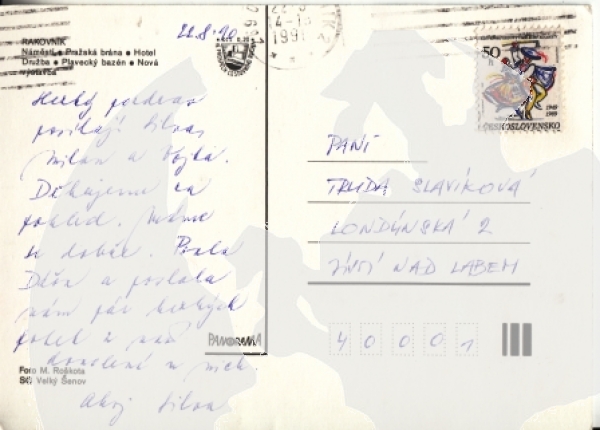 22.8.90
RAKOVNÍK
Náměstí • Pražská brána • Hotel
Družba • Plavecký bazén • Nová
výstavba
Hezký pozdrav
posílají Silva,
Milan a Vojta.
Děkujeme za
pohled. Máme
se dobře. Psala
Dáša a poslala
nám pár hezkých
fotek z
dovolené u nich.
Ahoj Silva
Foto M. Roškota
SČ Velký Šenov
PANORAMA
1991
50
1949
1989
ČESKOSLOVENSKO
PANÍ
TRUDA SLAVÍKOVÁ
LONDÝNSKÁ 2
ÚSTÍ NAD LABEM
40001